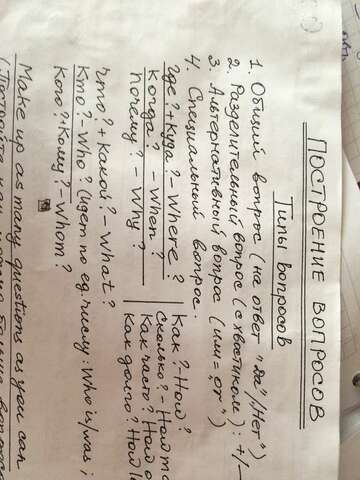 ПОСТРОЕНИЕ ВОПРОСОВ
Типы вопросов
1. Общий вопрос (на ответ "да"/"Нет")
2. Разделительный вопрос (с хвостиком): +/–
3. Альтернативный вопрос (или = "or")
4. Специальный вопрос.
Где? + Куда? – Where?
Когда? – When?
Почему? – Why?
Что? + Какой? – What?
Кто? – Who? (идет по ед. числу: Who is/was;
Кого? Кому? – Whom?
Как? – How?
Сколько? – How m
Как часто? How o
Как долго? How l
Make up as many questions as you can